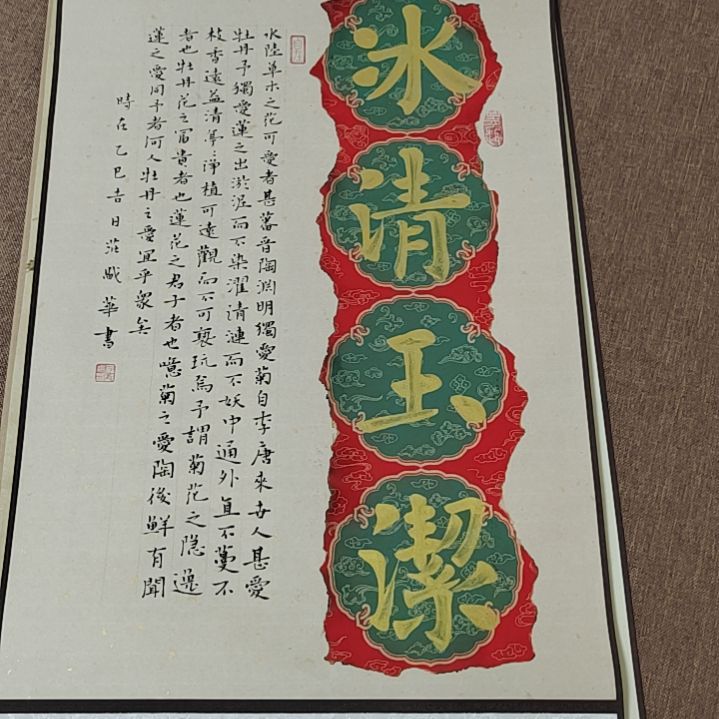 冰清玉潔
水陸草木之花可愛者甚蕃晉陶淵明獨愛菊自李唐來世人甚愛
牡丹予獨愛蓮之出淤泥而不染濯清漣而不妖中通外直不蔓不
枝香遠益清亭〻淨植可遠觀而不可褻玩焉予謂菊花之隐逸
者也牡丹花之富貴者也蓮花之君子者也噫菊之愛陶後鮮有聞
蓮之愛同予者何人牡丹之愛宜乎衆矣
時在乙巳吉日莊賦華書